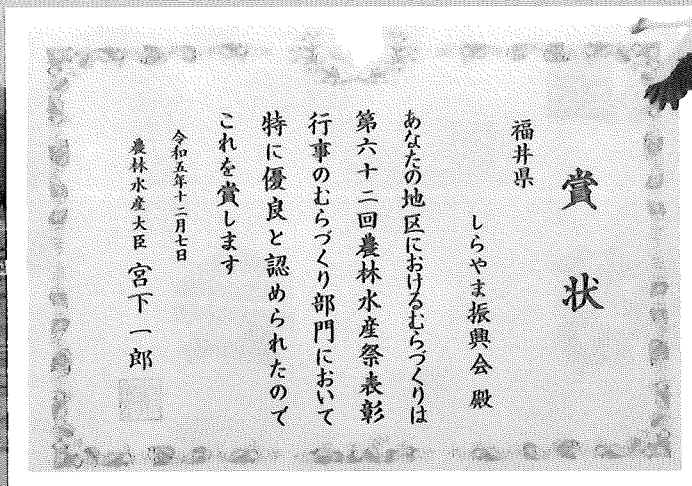 賞状
福井県
しらやま振興会 殿
あなたの地区におけるむらづくりは
第六十二回農林水産祭表彰
行事のむらづくり部門において
特に優良と認められたので
これを賞します
令和五年十二月七日
農林水産大臣 宮下一郎